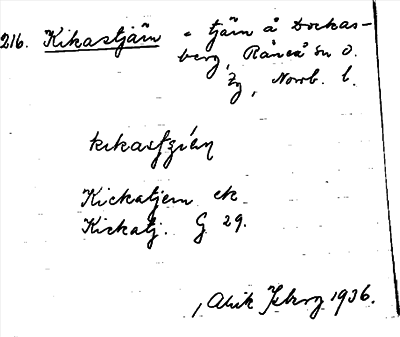 216. Kikastjärn - tjärn å Dockas-
berg, Råneå sn o.
tg, Norrb. l.
kikastjǽn
Kickatjern ek
Kickatj. G 29.
1936.